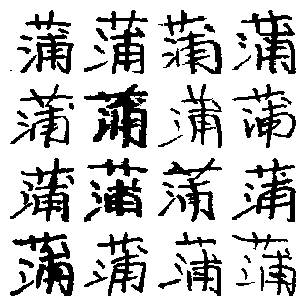 蒲蒲蒲蒲
蒲蒲蒲蒲
蒲蒲蒲蒲
蒲蒲蒲蒲